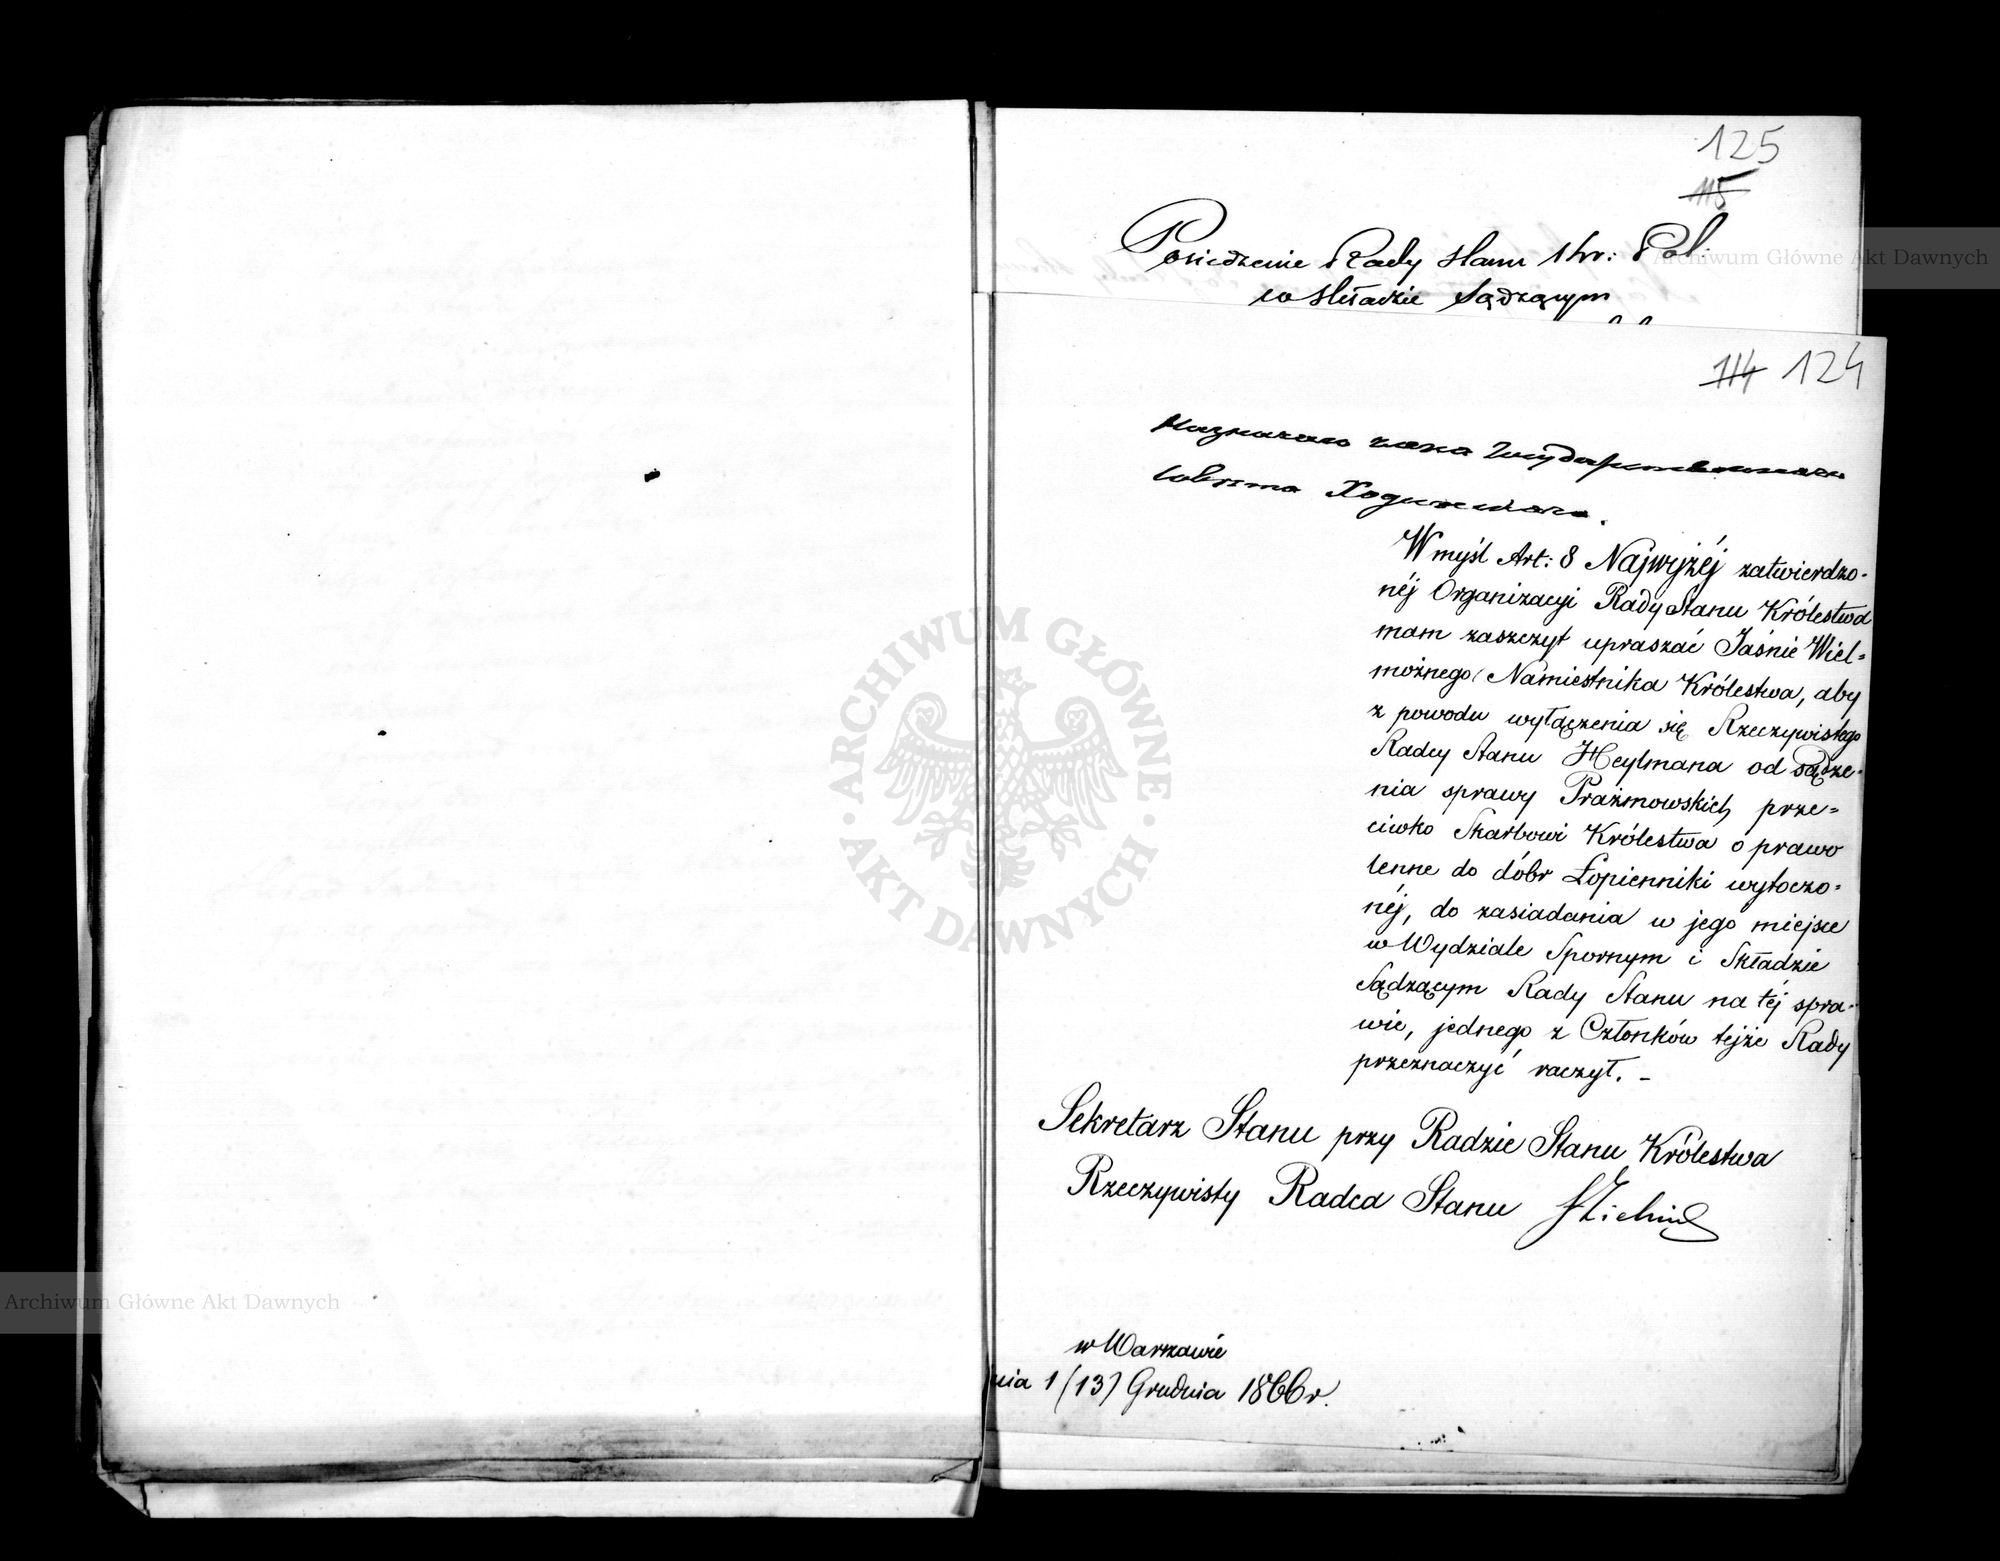 125
115
Posiedzenie Rady Stanu Kr: Pol:
w składzie Sądzącym
114 124
Wmyśl Art: 8 Najwyżéj zatwierdzo-
néj Organizacyi Rady Stanu Królestwa
mam zaszczyt upraszać Jaśnie Wiel=
możnego Namiestnika Królestwa, aby
z powodu wyłączenia się Rzeczywistego
Radcy Stanu Heylmana od sądze-
nia sprawy Prażmowskich prze=
ciwko Skarbowi Królestwa o prawo
lenne do dóbr Łopienniki wytoczo=
néj, do zasiadania w jego miejsce
w Wydziale Spornym i Składzie
Sądzącym Rady Stanu na téj spra-
wie, jednego z Członków tejże Rady
przeznaczyć raczył. -
Sekretarz Stanu przy Radzie Stanu Królestwa
Rzeczywisty Radca Stanu
w Warszawie
nia 1 (13) Grudnia 1866 r.
ARCHIWUM GŁÓWNE · AKT DAWNYCH ·
Archiwum Główne Akt Dawnych
Archiwum Główne Akt Dawnych